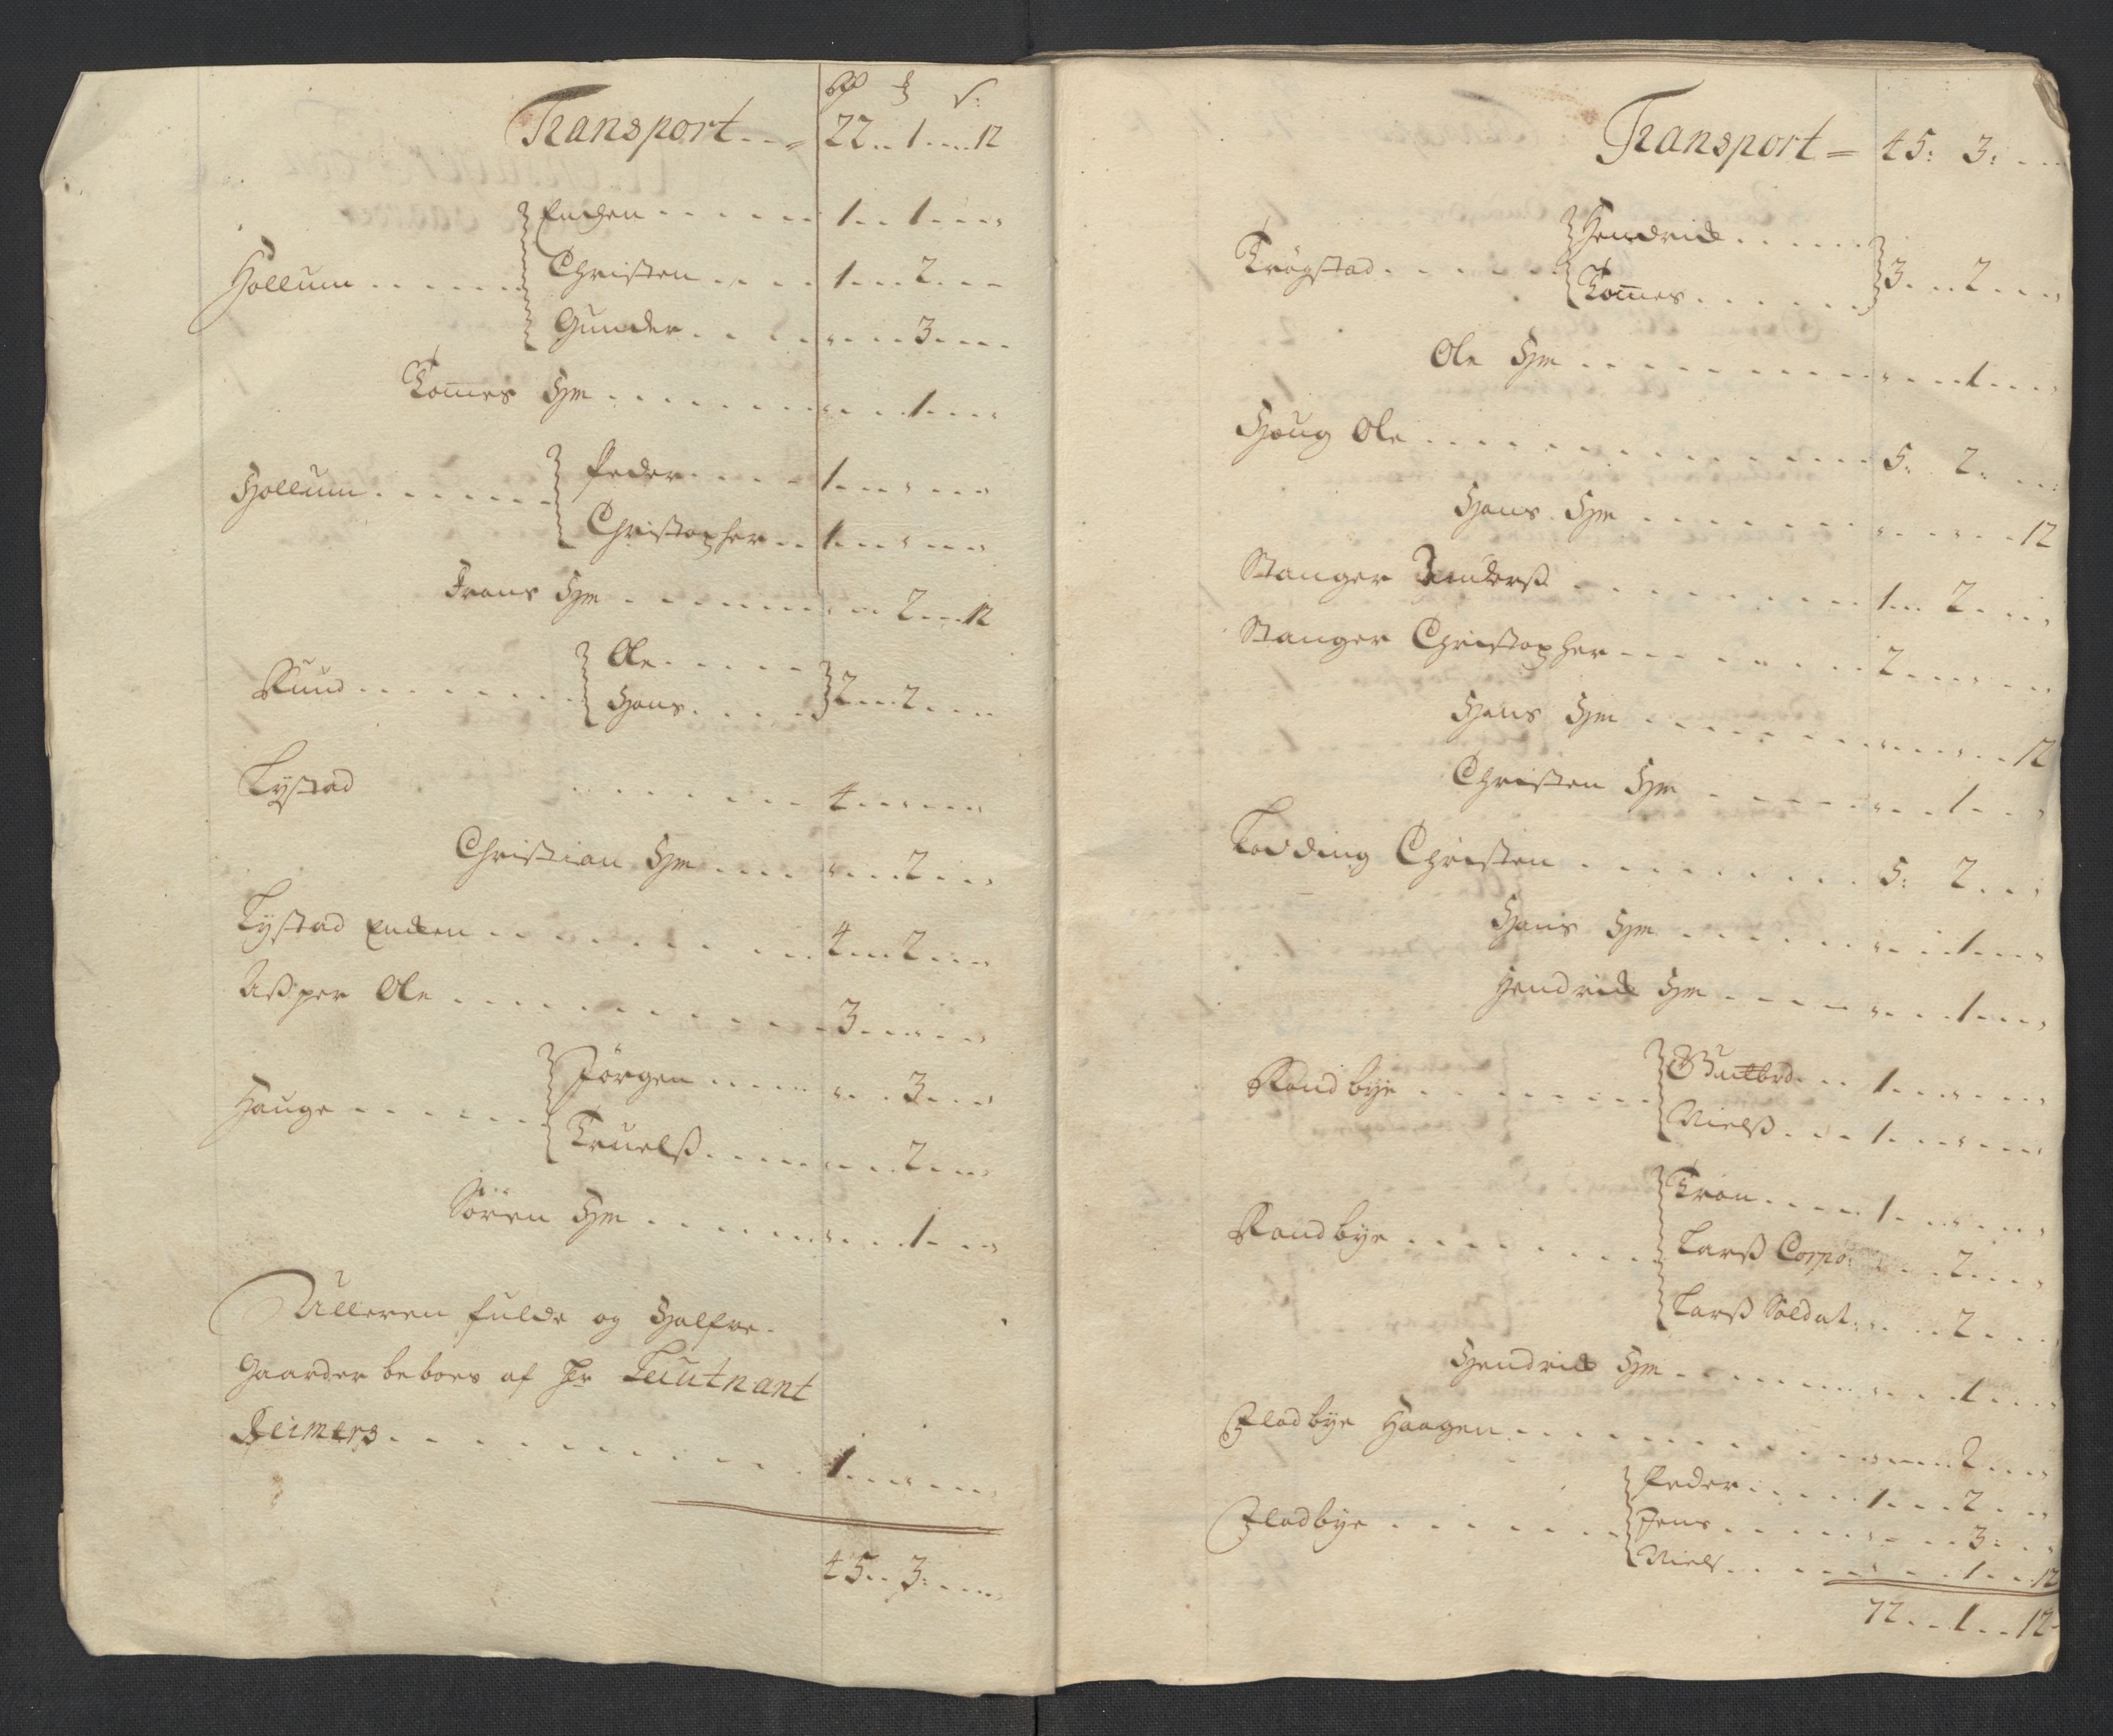 Transport - - = 22 - 1 - - 12
Hollum - - - - - - Enchen - - - - - 1 - - 1 - - -
Christen - - - - 1 - - 2 - - -
Gunder - - - - - " - - 3 - - -
Tom̅es Hm - - - - - - " - - 1 - - -
Hollum - - - - - - Peder - - - - 1 - - " - - -
Christopher - - 1 - - " - - -
Frans Hm - - - - - - " - - 2 - - 12
Ruud - - - - - - - Ole - - - - -
Hans - - - - - 2 - - 2 - - -
Lystad - - - - - - 4 - - " - - -
Christian Hm - - - - " - - 2 - - -
Lystad Encken - - - - - - - - 4 - - 2 - - -
Assper Ole - - - - - - - - - 3 - - " - - -
Hauge - - - - - - Jörgen - - - - - " - - 3 - - -
Truelß - - - - - " - - 2 - - -
Sören Hm - - - - - - " - - 1 - - -
Ulleren fulde og Halfve-
Gaarder beboes af Hr Leutnant
Reimers - - - - - - - - - 1 - - " - - -
45 - - 3 : - - -
Transport = 45 : 3 : - -
Krögstad - - - - - - Hendrick - - - - -
Tom̅es - - - - - - 3 - - 2 - - -
Ole Hm - - - - - - - - " - - 1 - - -
Houg Ole - - - - - - - - - - - 5 : 2 : - -
Hans Hm - - - - - - - " - - " - - 12
Stanger Anderß - - - - - - - - 1 - - 2 - - -
Stanger Christopher - - - - - - - - 2 - - " - - -
Hans Hm - - - - - - - " - - " - - 12
Christen Hm - - - - - " - - 1 - - -
Todding Christen - - - - - - - - 5 : 2 - - -
Hans Hm - - - - - - " - - 1 - - -
Hendrick Hm - - - - " - - 1 - - -
Randbye - - - - - - - Gutbrd - - 1 - - " - - -
Nielß - - - 1 - - " - - -
Randbye - - - - - - - - Tron - - - - 1 - - " - - -
Larß Corpo: " - - 2 - - -
Larß Soldat : " - - 2 - - -
Hendrick Hm - - - - - - " - - 1 - - -
Fladbye Haagen - - - - - - - - - " - - 2 - - -
Fladbye - - - - - - - Peder - - - - 1 - - 2 - - -
Jens - - - - - " - - 3 : - -
Niels - - - - - " - - 1 - - 12
72 - - 1 - - 12